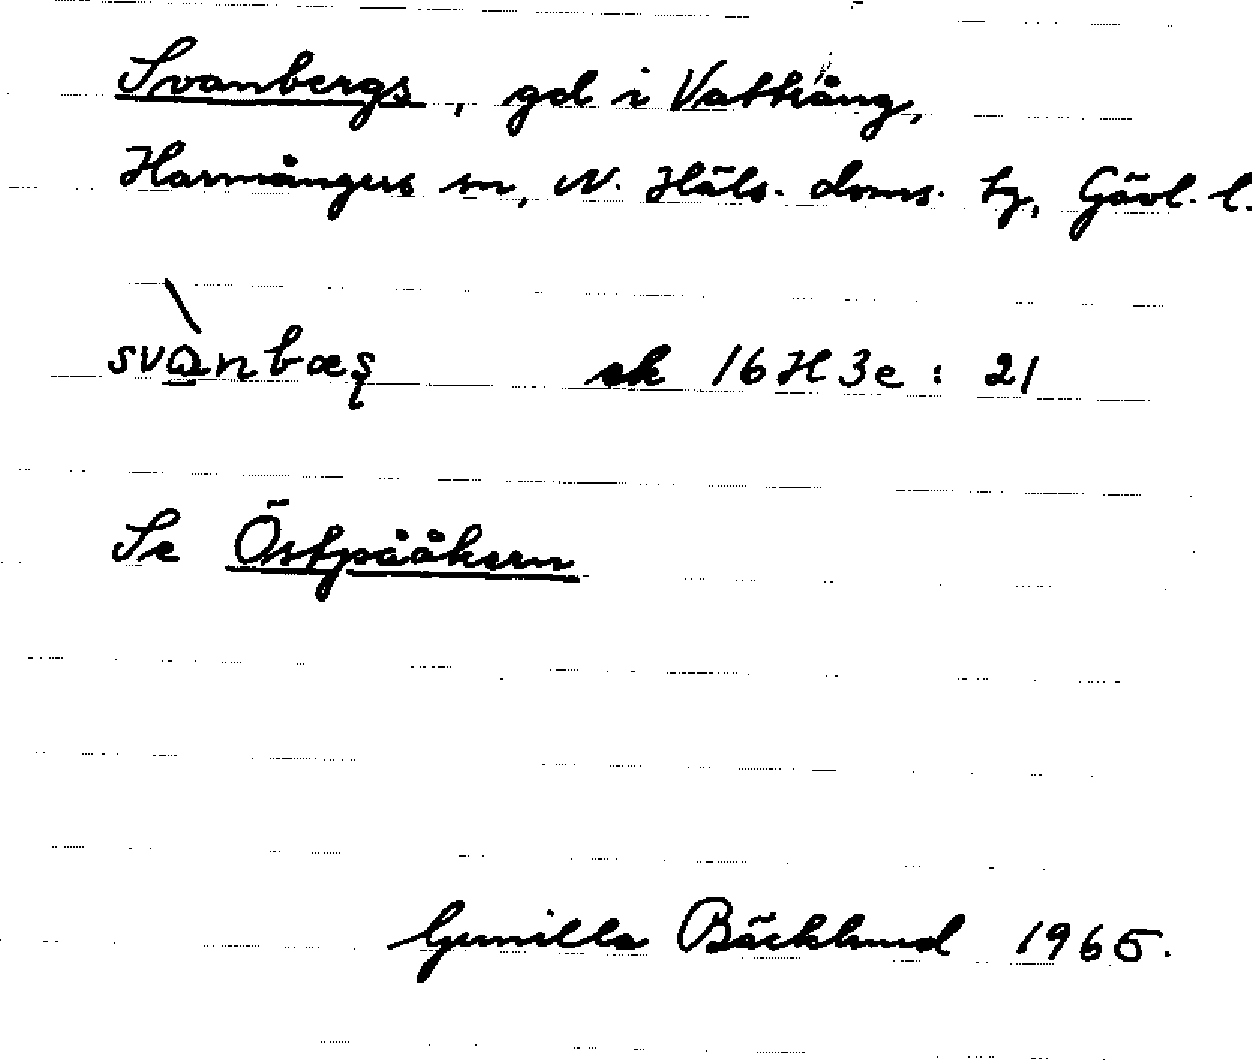 Svanbergs, gd i Vattrång,
Harmångers sn, N. Häls. doms. tg, Gävl. l.
svànbæș ek 16H3e : 21
Se Östpååkern
Gunilla Bäcklund 1965.